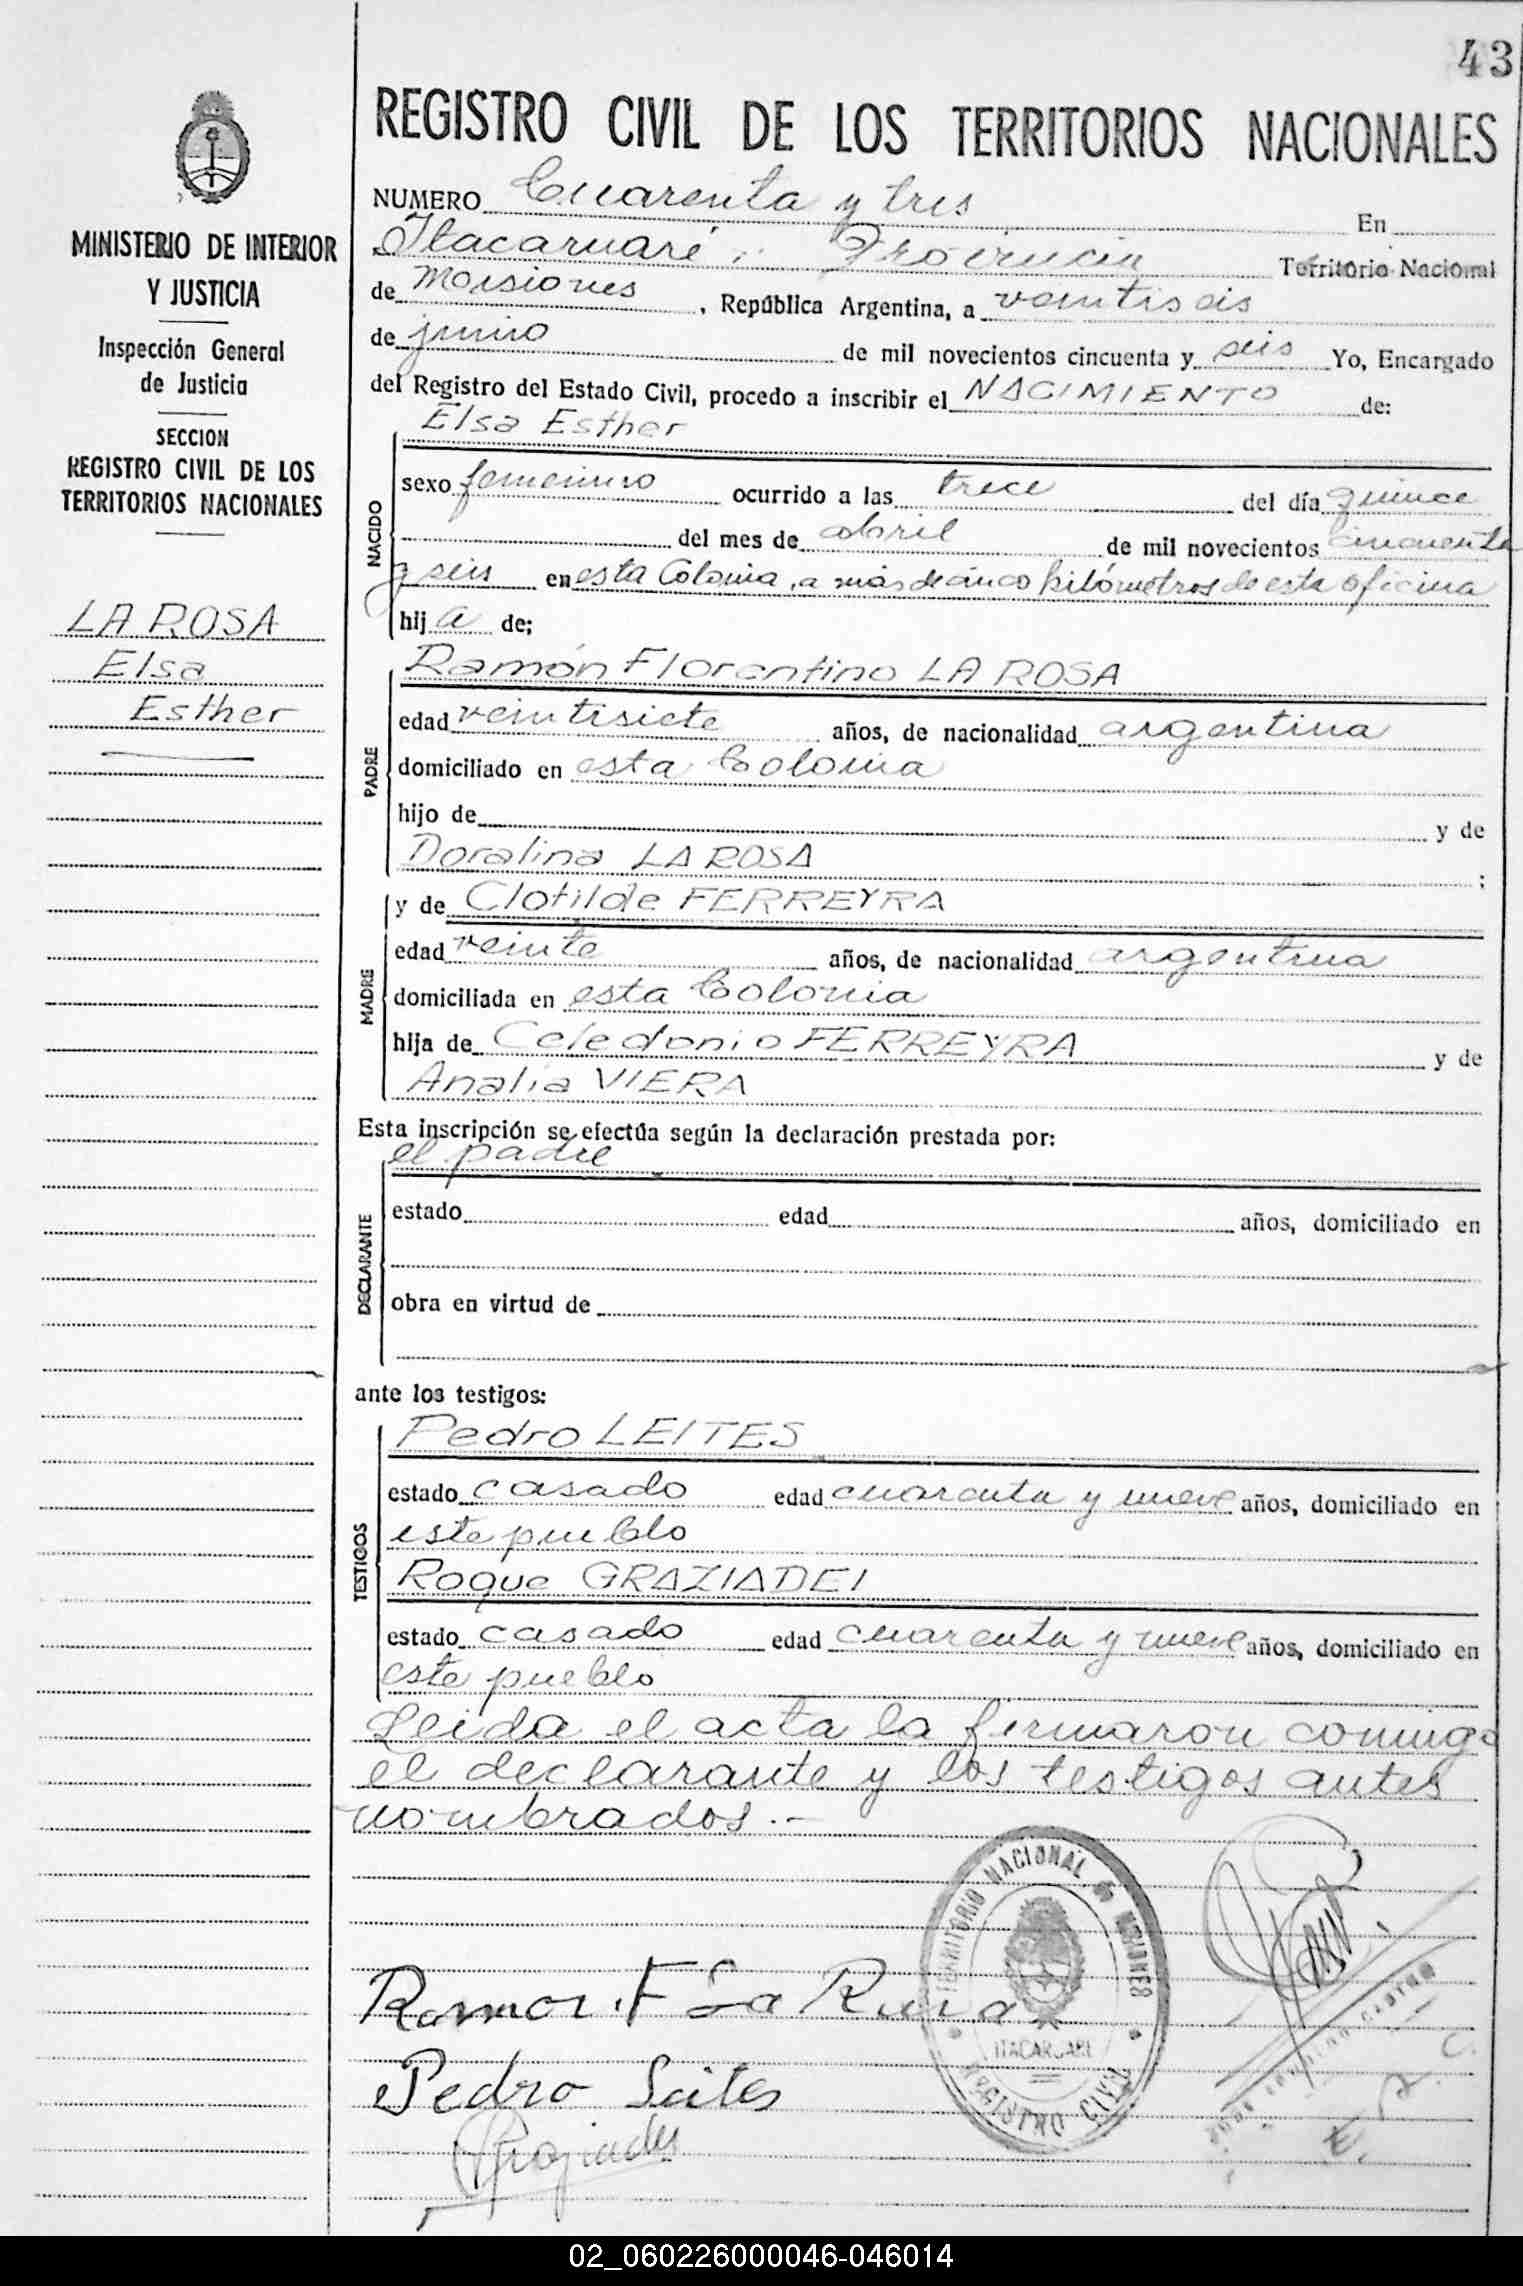 43
MINISTERIO DE INTERIOR
Y JUSTICIA
Inspección General
de Justicia
SECCION
REGISTRO CIVIL DE LOS
TERRITORIOS NACIONALES
LA ROSA
Elsa
Esther
REGISTRO CIVIL DE LOS TERRITORIOS NACIONALES
NUMERO Cuarenta y tres En
Itacaruaré, Provincia Territorio Nacional
de Misiones, República Argentina, a veintiseis
de junio de mil novecientos cincuenta y seis Yo, Encargado
del Registro del Estado Civil, procedo a inscribir el NACIMIENTO de:
NACIDO
Elsa Esther
sexo femenino ocurrido a las trece del día quince
del mes de abril de mil novecientos cincuenta
y seis en esta Colonia, a más de cinco kilómetros de esta oficina
hij a de;
PADRE
Ramón Florentino LA ROSA
edad veintisiete años, de nacionalidad argentina
domiciliado en esta Colonia
hijo de y de
Doralina LA ROSA ;
MADRE
y de Clotilde FERREYRA
edad veinte años, de nacionalidad argentina
domiciliada en esta Colonia
hija de Celedonio FERREYRA y de
Analia VIERA
Esta inscripción se efectúa según la declaración prestada por:
DECLARANTE
el padre
estado edad años, domiciliado en
obra en virtud de
ante los testigos:
TESTIGOS
Pedro LEITES
estado casado edad cuarenta y nueve años, domiciliado en
este pueblo
Roque GRAZIADEI
estado casado edad cuarenta y nueve años, domiciliado en
este pueblo
Leida el acta la firmaron conmigo
el declarante y los testigos antes
nombrados.-
TERRITORIO NACIONAL DE MISIONES
ITACARUARE
REGISTRO CIVIL
Ramon F La Rosa
Pedro Leites
02_060226000046-046014